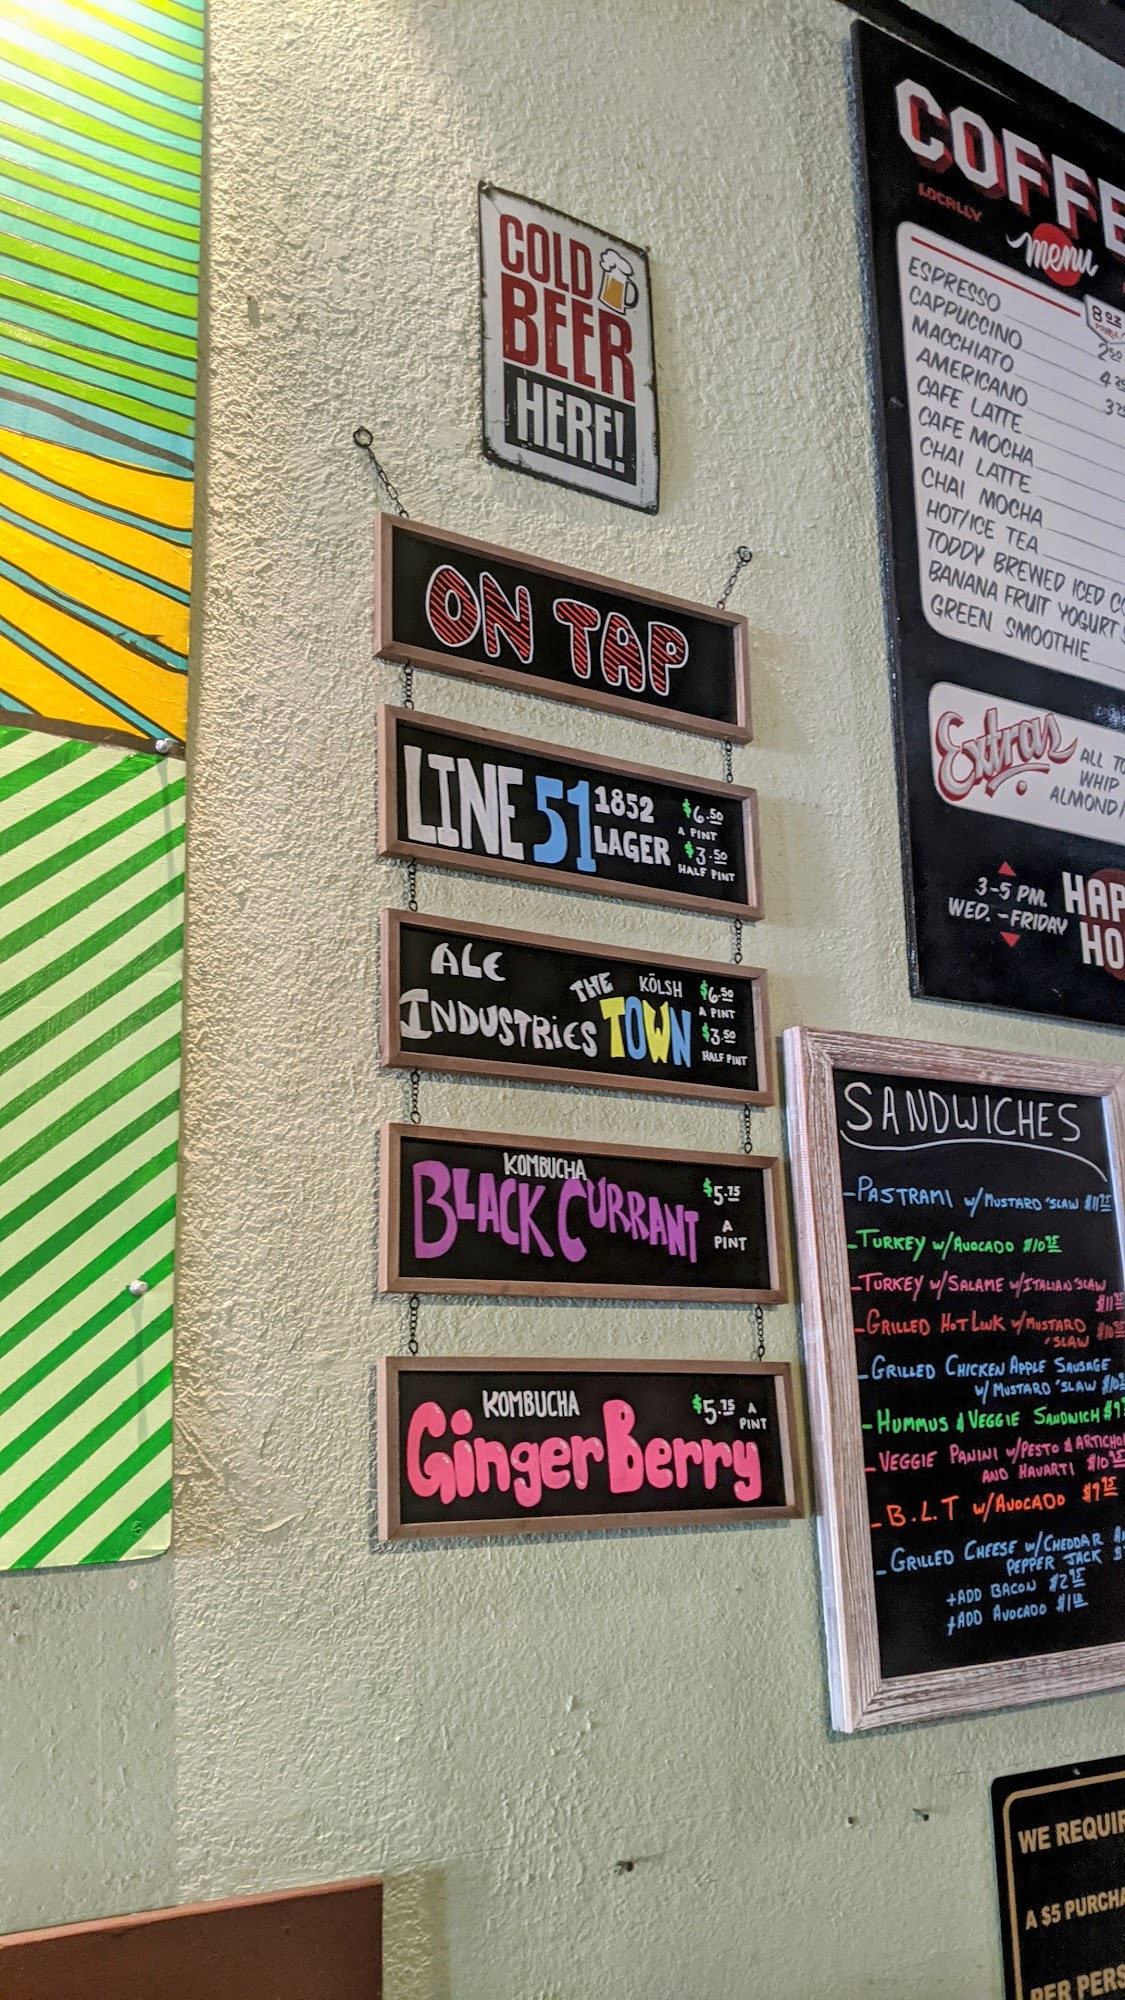 COLD
BEER
HERE!
ON TAP
LINE 51 1852 LAGER
$6.50
A PINT
$3.50
HALF PINT
ALE
INDUSTRIES
THE
TOWN
KÖLSH
$6.50
A PINT
$3.50
HALF PINT
KOMBUCHA
BLACK CURRANT
$5.75
A
PINT
KOMBUCHA
GingerBerry
$5.75 A
PINT
COFFE
LOCALLY
menu
8 OZ
ESPRESSO 2.50
CAPPUCCINO
MACCHIATO
AMERICANO
CAFE LATTE
CAFE MOCHA
CHAI LATTE
CHAI MOCHA
HOT/ICE TEA
TODDY BREWED ICED
BANANA FRUIT YOGURT
GREEN SMOOTHIE
Extras
ALL TO
WHIP
ALMOND/
3-5 PM.
WED.-FRIDAY
HAP
HO
SANDWICHES
-PASTRAMI W/MUSTARD 'SLAW $11.75
-TURKEY W/AVOCADO $10.95
-TURKEY W/SALAME W/ITALIAN 'SLAW
-GRILLED HOT LINK W/MUSTARD
'SLAW
-GRILLED CHICKEN APPLE SAUSAGE
W/ MUSTARD 'SLAW
-HUMMUS & VEGGIE SANDWICH
-VEGGIE PANINI W/PESTO & ARTICHO
AND HAVARTI
-B.L.T W/AVOCADO
-GRILLED CHEESE W/CHEDDAR
PEPPER JACK
+ADD BACON $2.95
+ADD AVOCADO
WE REQUIR
A $5 PURCHA
PER PERS